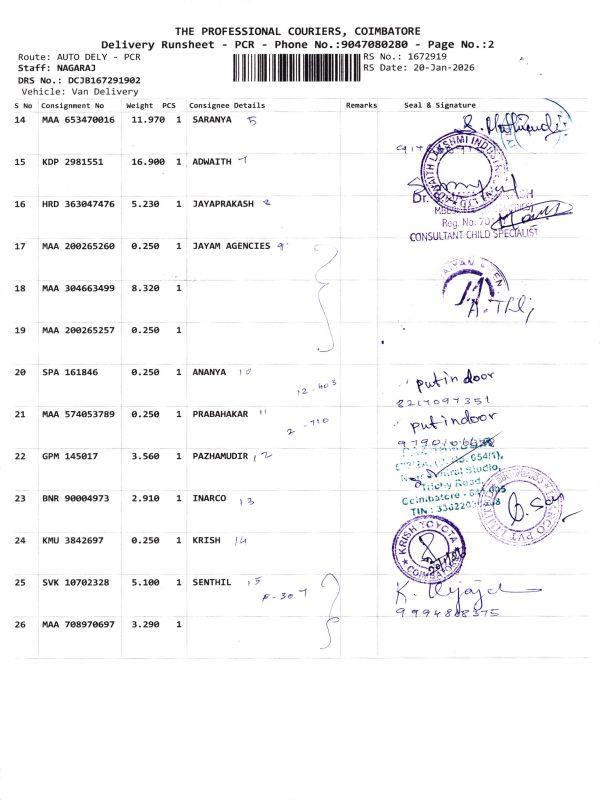 THE PROFESSIONAL COURIERS, COIMBATORE
Delivery Runsheet - PCR - Phone No.:9047080280 - Page No.:2
Route: AUTO DELY - PCR
RS No.: 1672919
Staff: NAGARAJ
RS Date: 20-Jan-2026
DRS No.: DCJB167291902
Vehicle: Van Delivery
S No Consignment No Weight PCS Consignee Details Remarks Seal & Signature
14 MAA 653470016 11.970 1 SARANYA 5
15 KDP 2981551 16.900 1 ADWAITH 7
LAKSHMI INDUSTRI
16 HRD 363047476 5.230 1 JAYAPRAKASH
Dr.
Reg. No: 70
CONSULTANT CHILD SPECIALIST
17 MAA 200265260 0.250 1 JAYAM AGENCIES 9
18 MAA 304663499 8.320 1
19 MAA 200265257 0.250 1
20 SPA 161846 0.250 1 ANANYA 10
12-403
putin door
8217097351
21 MAA 574053789 0.250 1 PRABAHAKAR 11
2 -710
putindoor
22 GPM 145017 3.560 1 PAZHAMUDIR 12
Studio,
Trichy Road,
Coimbatore - 641 005
TIN :
23 BNR 90004973 2.910 1 INARCO 13
24 KMU 3842697 0.250 1 KRISH 14
KRISH TOYOTA
COIMBATORE
25 SVK 10702328 5.100 1 SENTHIL 15
F-307
9994888375
26 MAA 708970697 3.290 1